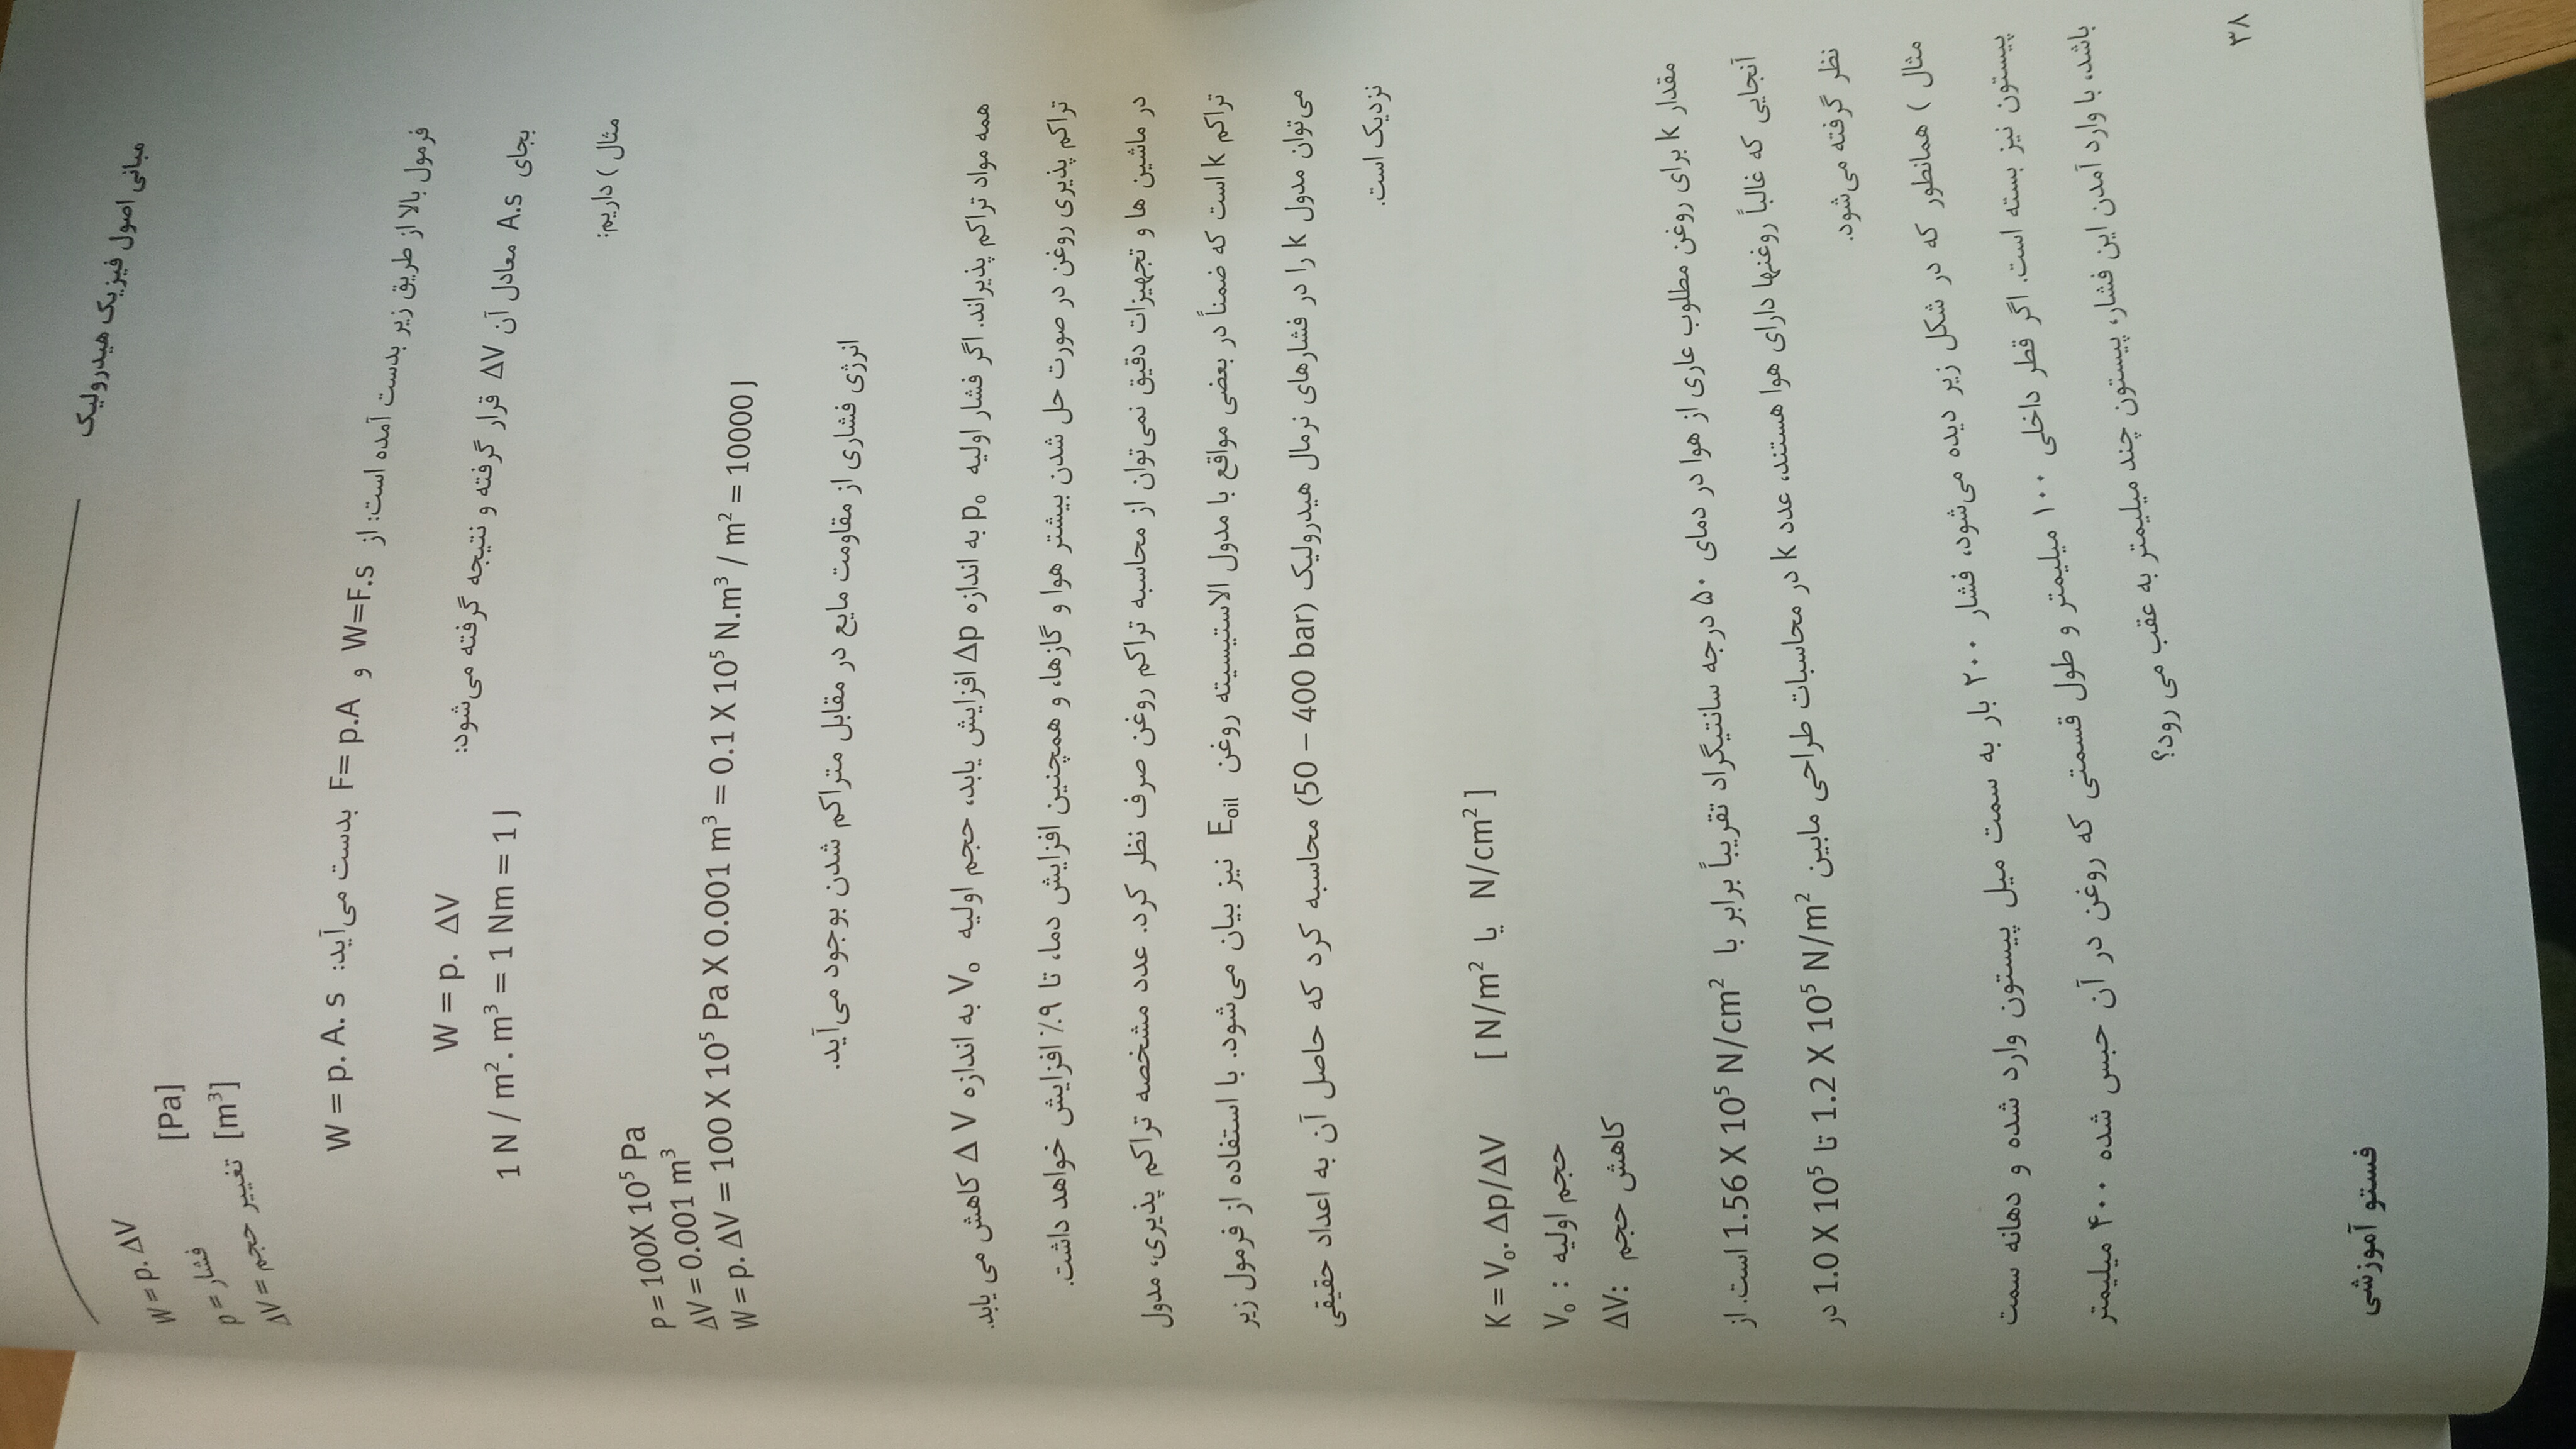 مبانی اصول فیزیک هیدرولیک
W = p. ΔV
p = فشار [Pa]
ΔV = تغییر حجم [m³]
فرمول بالا از طریق زیر بدست آمده است: از W=F.s و F= p.A بدست می‌آید: W = p. A. s
بجای A.s معادل آن ΔV قرار گرفته و نتیجه گرفته می‌شود:
W = p. ΔV
1 N / m². m³ = 1 Nm = 1 J
مثال ) داریم:
P = 100X 10⁵ Pa
ΔV = 0.001 m³
W = p. ΔV = 100 X 10⁵ Pa X 0.001 m³ = 0.1 X 10⁵ N.m³ / m² = 10000 J
انرژی فشاری از مقاومت مایع در مقابل متراکم شدن بوجود می‌آید.
همه مواد تراکم پذیراند. اگر فشار اولیه p₀ به اندازه Δp افزایش یابد، حجم اولیه V₀ به اندازه ΔV کاهش می یابد.
تراکم پذیری روغن در صورت حل شدن بیشتر هوا و گازها، و همچنین افزایش دما، تا ۹٪ افزایش خواهد داشت.
در ماشین ها و تجهیزات دقیق نمی‌توان از محاسبه تراکم روغن صرف نظر کرد. عدد مشخصه تراکم پذیری، مدول
تراکم k است که ضمناً در بعضی مواقع با مدول الاستیسیته روغن Eoil نیز بیان می‌شود. با استفاده از فرمول زیر
می‌توان مدول k را در فشارهای نرمال هیدرولیک (50 – 400 bar) محاسبه کرد که حاصل آن به اعداد حقیقی
نزدیک است.
K = V₀. Δp/ΔV [ N/m² یا N/cm² ]
V₀ : حجم اولیه
ΔV: کاهش حجم
مقدار k برای روغن مطلوب عاری از هوا در دمای ۵۰ درجه سانتیگراد تقریباً برابر با 1.56 X 10⁵ N/cm² است. از
آنجایی که غالباً روغنها دارای هوا هستند، عدد k در محاسبات طراحی مابین 1.0 X 10⁵ تا 1.2 X 10⁵ N/m² در
نظر گرفته می‌شود.
مثال ) همانطور که در شکل زیر دیده می‌شود، فشار ۲۰۰ بار به سمت میل پیستون وارد شده و دهانه سمت
پیستون نیز بسته است. اگر قطر داخلی ۱۰۰ میلیمتر و طول قسمتی که روغن در آن حبس شده ۴۰۰ میلیمتر
باشد، با وارد آمدن این فشار، پیستون چند میلیمتر به عقب می رود؟
۳۸
فستو آموزشی